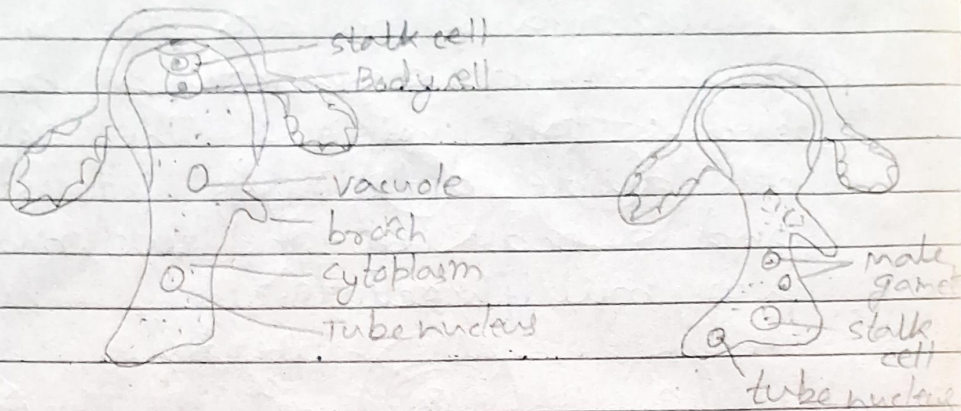 stalk cell
Body cell
vacuole
branch
cytoplasm
Tube nucleus
male
game
stalk
cell
tube nucleus